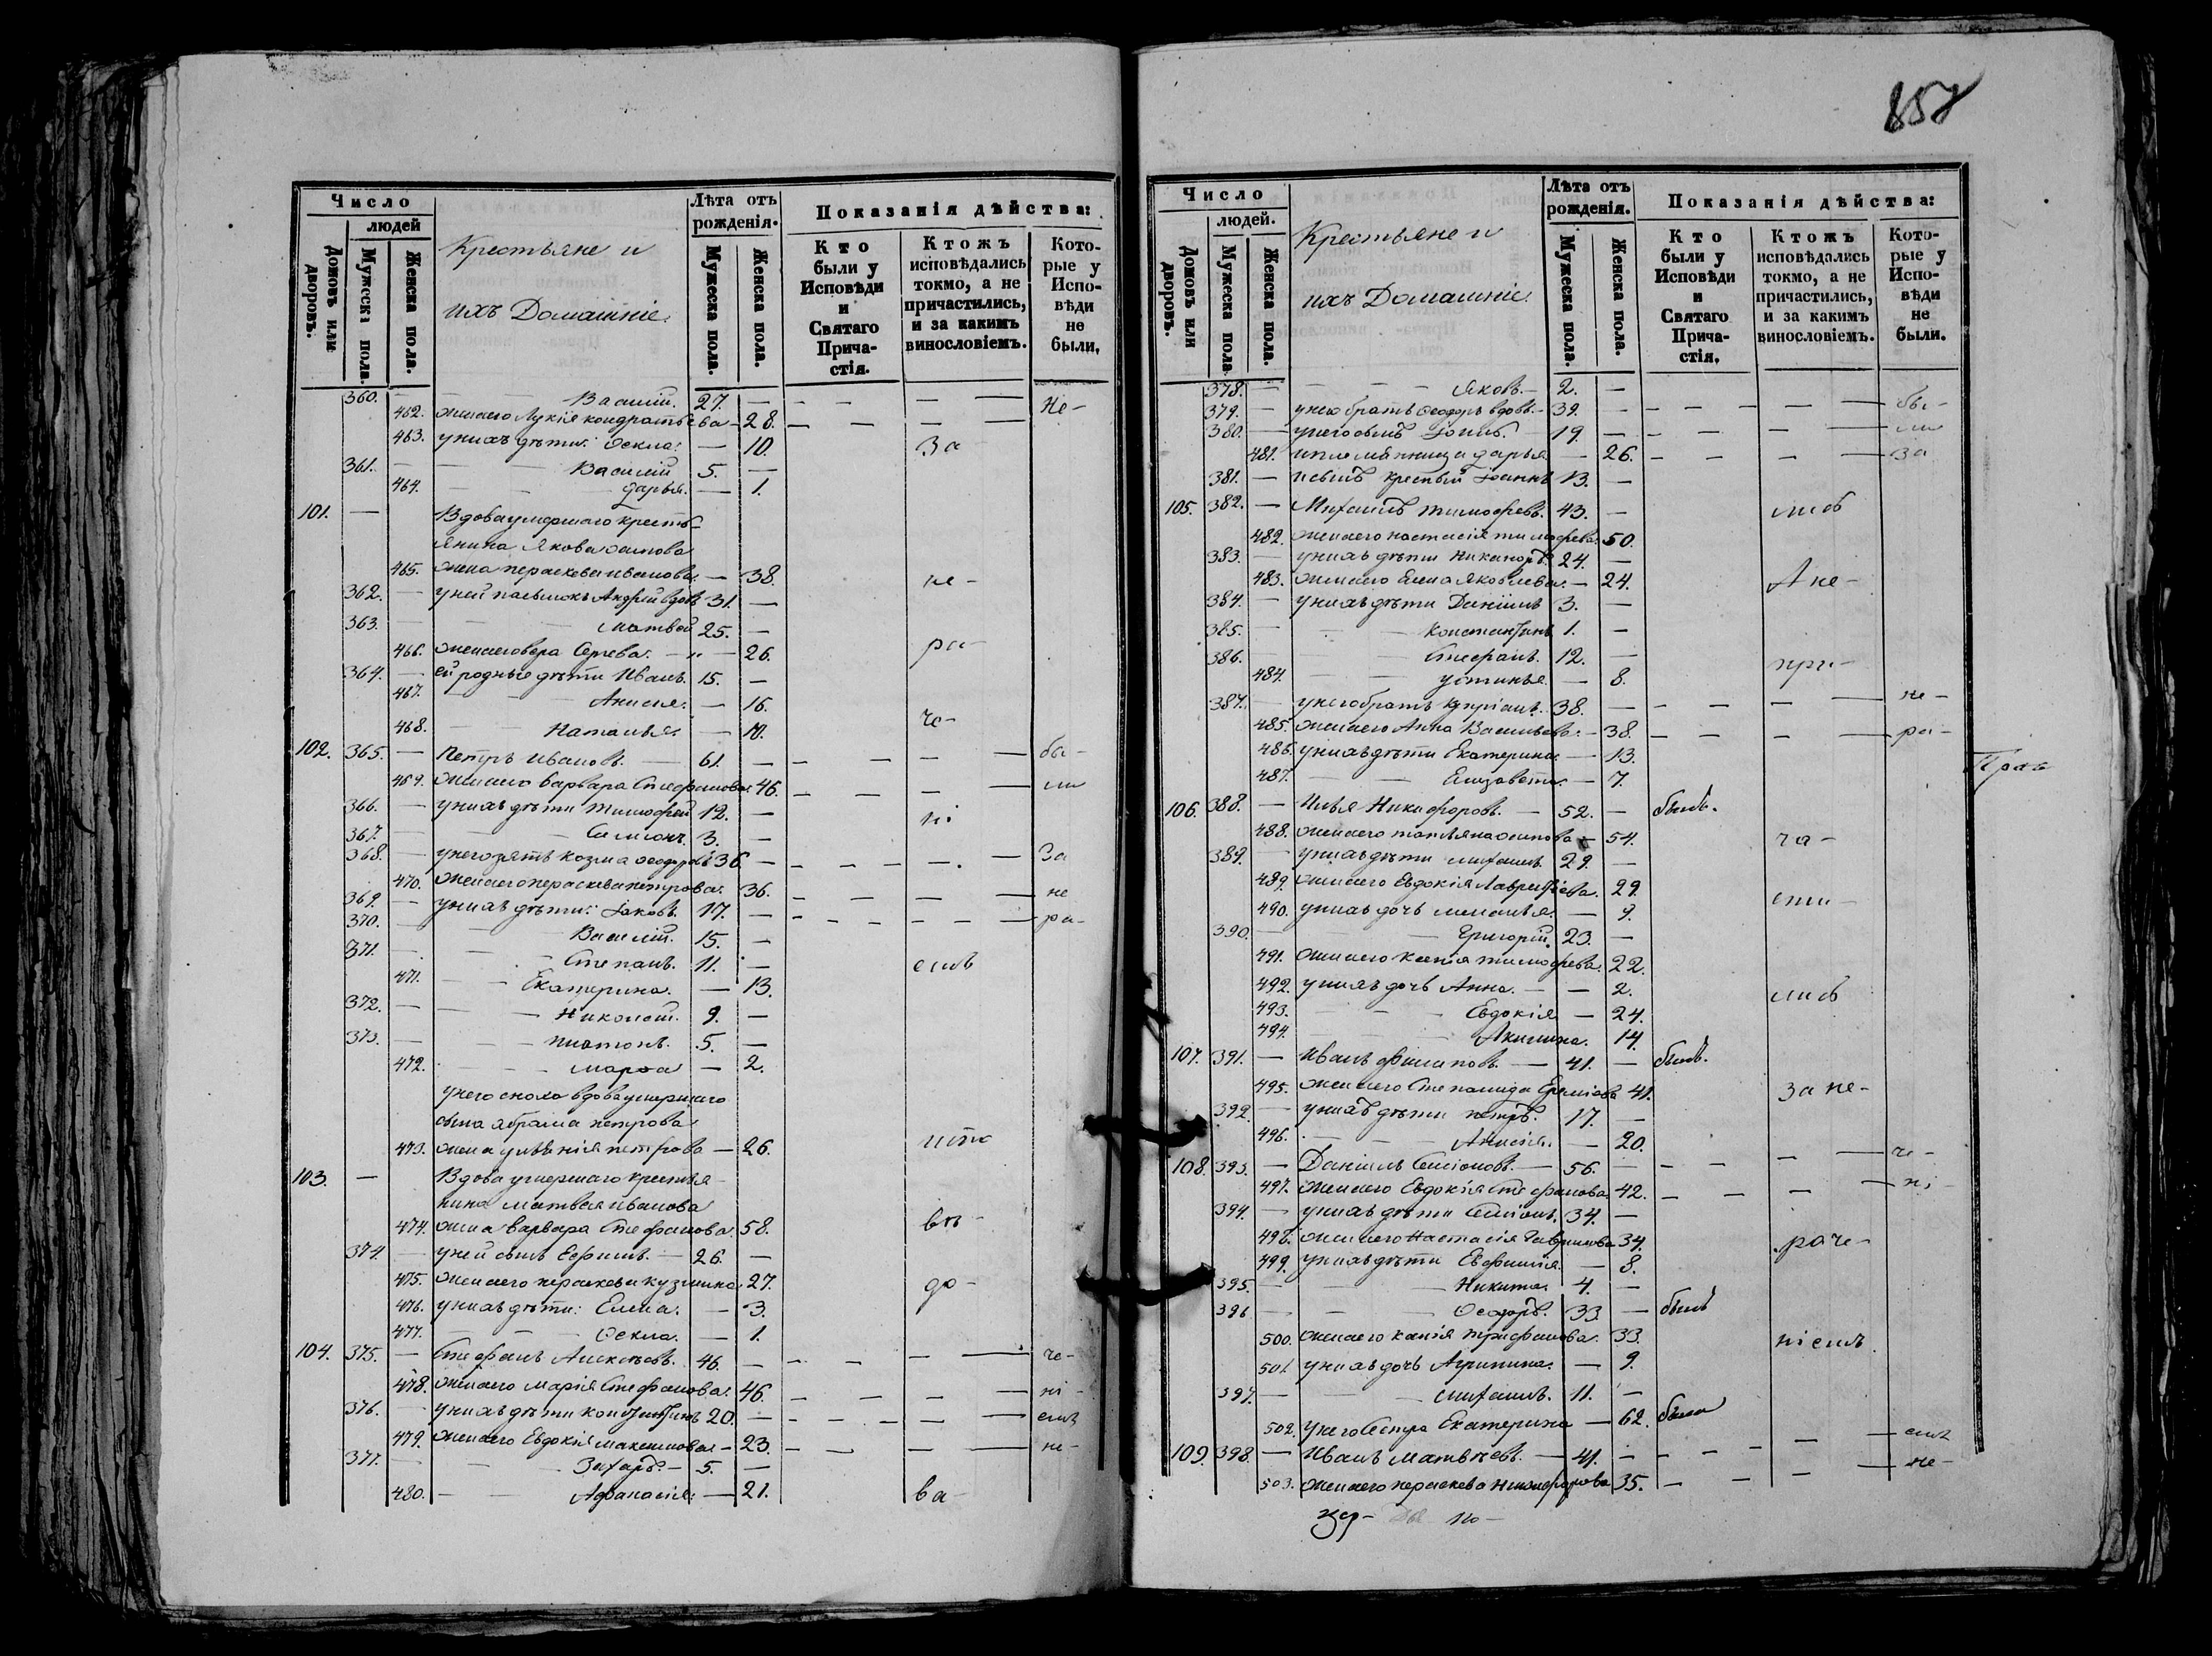 858
Число
людей
Домовъ или дворовъ.
Мужеска пола.
Женска пола.
Крестьяне и
ихъ Домашніе.
Лѣта отъ рожденія.
Мужеска пола.
Женска пола.
Показанія дѣйства:
Кто были у Исповѣди и Святаго Причастія.
Ктожъ исповѣдались токмо, а не причастились, и за какимъ винословіемъ.
Которые у Исповѣди не были.
360. — Василій. 27. — Не-
462. жена его Лукія кондратьева — 28.
463. у нихъ дѣти: Ѳекла. — 10. За
361. — Василій 5. —
464. Дарья. — 1.
101. — Вдова умершаго кресть-
янина Якова осипова
465. жена параскева иванова. — 38. не-
362. — у ней пасынокъ Андрей вдовъ 31. —
363. — матвей 25. —
466. жена его вера Сергева. — 26. ра-
364. — ей родные дѣти Иванъ. 15. —
467. Анисия. — 16.
468. Наталья. — 10. че-
102. 365. — Петръ Ивановъ. — 61. — бы-
469. жена его варвара Стефанова. 46. ли
366. — у нихъ дѣти Тимофей 12. — ні
367. — Симіонъ. 3. —
368. — у него зять козма Ѳеодоровъ 36 — За
470. жена его параскева петрова. 36. не
369. — у нихъ дѣти: Іаковъ. 17. — ра-
370. — Василій. 15. —
371. — Степанъ. 11. — емъ
471. Екатерина. — 13.
372. — Николай. 9. —
373. — платонъ. 5. —
472. марѳа — 2.
у него сноха вдова умершаго
сына абрама петрова
473. жена улянія петрова — 26.
103. — Вдова умершаго крестья-
нина матвея иванова
474. жена варвара Стефанова. 58. въ-
374. — у ней сынъ Ефимъ. — 26. —
475. жена его параскева кузмина 27. до-
476. у нихъ дѣти: Елена. — 3.
477. Ѳекла. — 1.
104. 375. — Стефанъ Алексѣевъ. 46. — че-
478. жена его Марія Стефанова. 46. ні-
376. — у нихъ дѣти константинъ 20. — емъ
479. жена его Евдокія максимова — 23. не-
377. — Захаръ. — 5. —
480. Афанасія. — 21. ва-
Число
людей.
Домовъ или дворовъ.
Мужеска пола.
Женска пола.
Крестьяне и
ихъ Домашніе.
Лѣта отъ рожденія.
Мужеска пола.
Женска пола.
Показанія дѣйства:
Кто были у Исповѣди и Святаго Причастія.
Ктожъ исповѣдались токмо, а не причастились, и за какимъ винословіемъ.
Которые у Исповѣди не были.
378. — Яковъ. — 2. —
379. — у него братъ Ѳеодоръ вдовъ. — 39. — бы-
380. — у него сынъ 19. — ли
481. племянница дарья — 26. за
381. — крестный Іоаннъ 13. —
105. 382. — Михаилъ тимофеевъ. 43. — лись
482. жена его настасія тимофеева. 50.
383. — у нихъ дѣти Никаноръ. 24. —
483. жена его Елена Яковлева. — 24. А не-
384. — у нихъ дѣти Даніилъ 3. —
385. — константинъ 1. —
386. — Стефанъ. 12. —
484. устинья — 8. при-
387. — у него братъ купріянъ. 38. — не-
485. жена его Анна Васильева. — 38. ра-
486. у нихъ дѣти Екатерина. — 13.
487. Елизавета. — 7.
Прав
106. 388. — Илья Никифоровъ. — 52. — былъ.
488. жена его татьяна осипова — 54. ча-
389. — у нихъ дѣти михаилъ. 29. —
489. жена его Евдокія Лаврентіева. 29.
490. у нихъ дочь меланья. — 9. сти-
390. — Григорій. 23. —
491. жена его ксенія тимофеева. 22.
492. у нихъ дочь Анна. — 2. лись
493. Евдокія — 24.
494. Акилина. 14.
107. 391. — Иванъ филиповъ. — 41. — былъ.
495. жена его Степанида Ермиова 41. за не-
392. — у нихъ дѣти петръ. 17. —
496. Анисія. — 20.
108. 393. — Даніилъ Симіоновъ. — 56. — че-
497. жена его Евдокія Стефанова. 42. ні-
394. — у нихъ дѣти Симіонъ. 34. —
498. жена его Настасія Гаврилова 34. раче-
499. у нихъ дѣти Евфимія — 8.
395. — Никита. 4. —
396 — Ѳеодоръ. 33 — былъ
500. жена его ксенія трифонова. 33. ніемъ
501. у нихъ дочь Агрипина. — 9.
397. — михаилъ. 11. —
502. у него Сестра Екатерина — 62. была
109. 398. — Иванъ Матвѣевъ. — 41. — емъ
503. жена его параскева Никифорова 35. не-